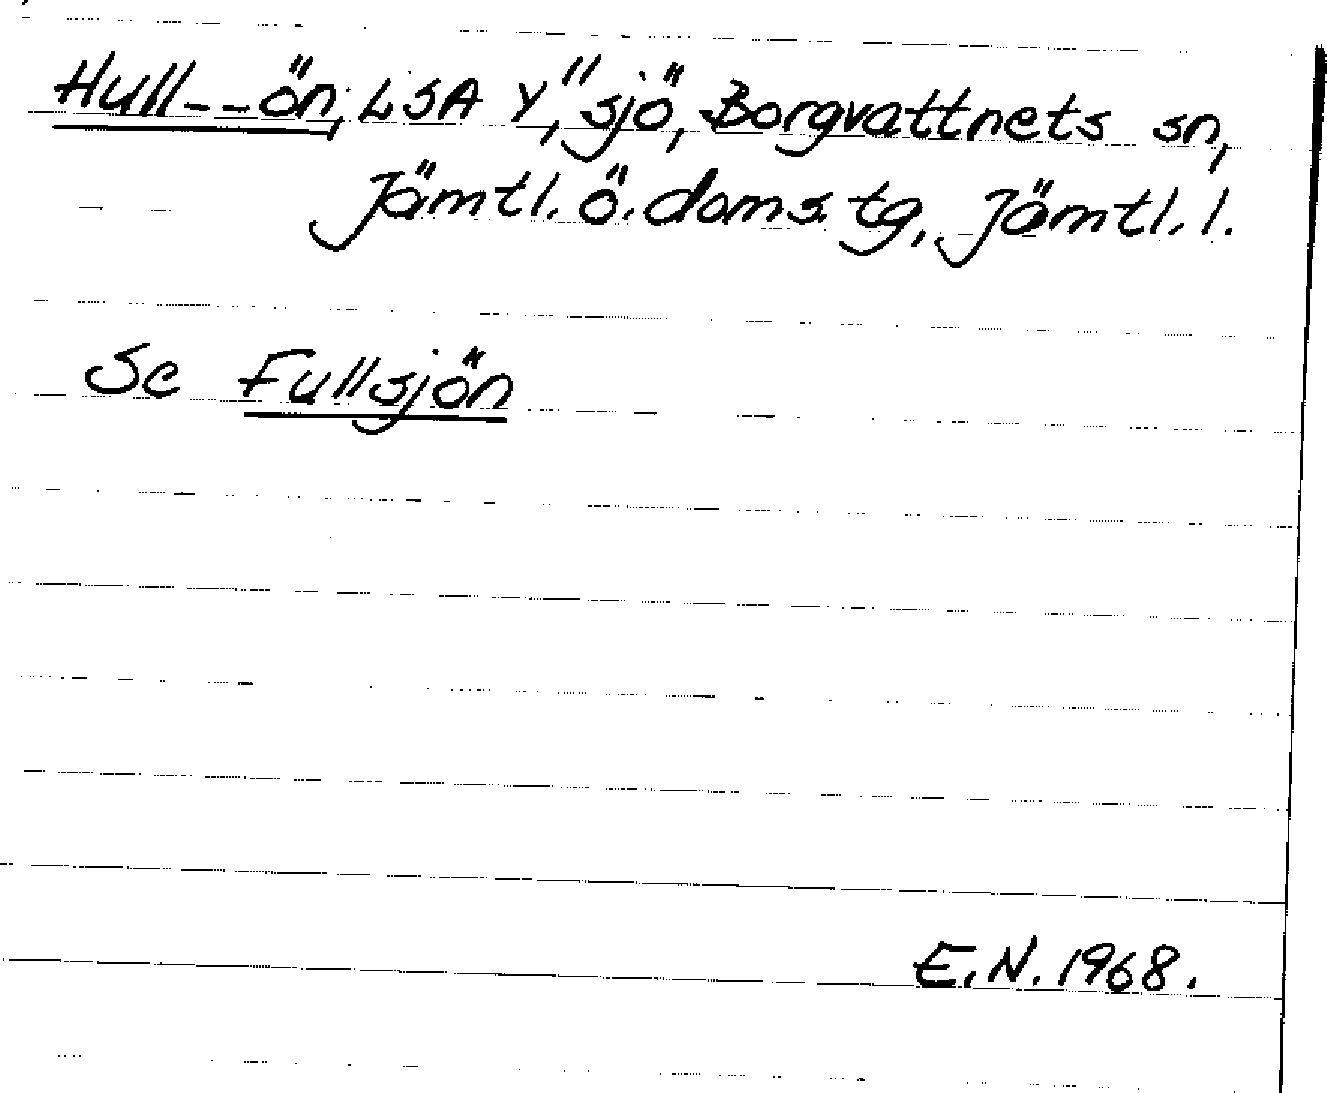 Hull--ön, LSA Y," sjö, Borgvattnets sn,
Jämtl. ö. doms. tg, Jämtl. l.
Se Fullsjön
E.N. 1968.